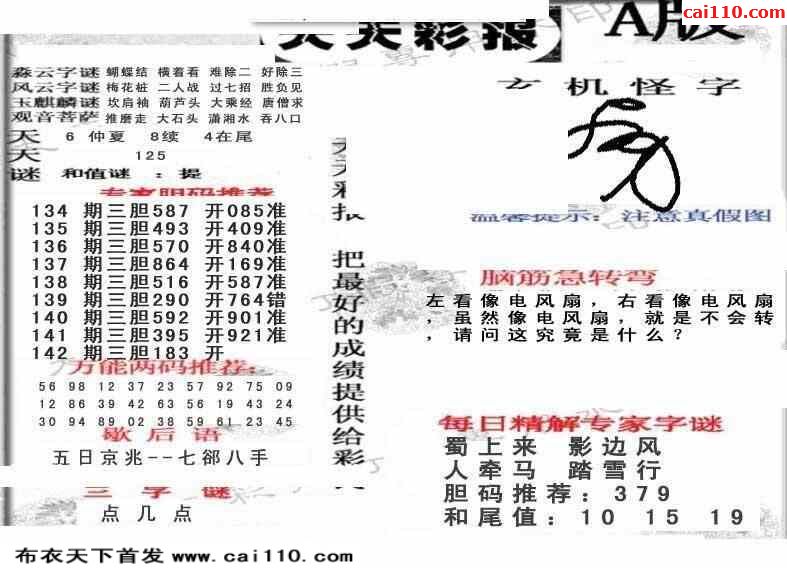 天天彩报
A版
cai110.com
森云字谜 蝴蝶结 横着看 难除二 好除三
风云字谜 梅花桩 二人战 过七招 胜负见
玉麒麟谜 坎肩袖 葫芦头 大乘经 唐僧求
观音菩萨 推磨走 大石头 潇湘水 吞八口
天 6 仲夏 8续 4在尾
天 125
谜 和值谜 : 提
专家胆码推荐
134 期三胆587 开085准
135 期三胆493 开409准
136 期三胆570 开840准
137 期三胆864 开169准
138 期三胆516 开587准
139 期三胆290 开764错
140 期三胆592 开901准
141 期三胆395 开921准
142 期三胆183 开
万能两码推荐:
56 98 12 37 23 57 92 75 09
12 86 39 42 63 56 19 43 24
30 94 89 02 38 59 61 23 45
歇后语
五日京兆--七郤八手
三字谜
点几点
天天彩报 把最好的成绩提供给彩
玄机怪字
温馨提示: 注意真假图
脑筋急转弯
左看像电风扇，右看像电风扇
，虽然像电风扇，就是不会转
，请问这究竟是什么？
每日精解专家字谜
蜀上来 影边风
人牵马 踏雪行
胆码推荐: 379
和尾值: 10 15 19
布衣天下首发 www.cai110.com